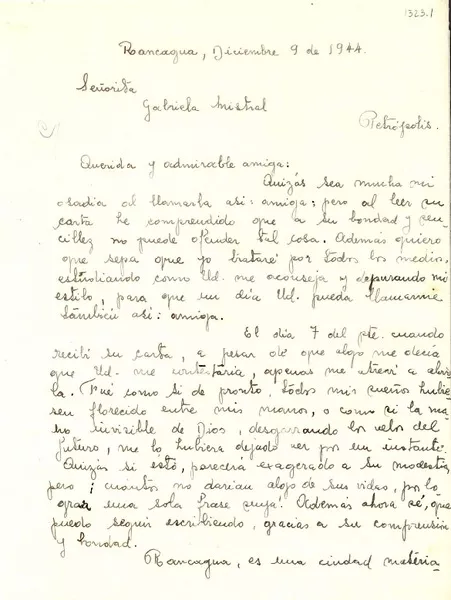 1323.1
Rancagua, Diciembre 9 de 1944.
Señorita
Gabriela Mistral
Petrópolis.
Querida y admirable amiga:
Quizás sea mucha mi
osadía al llamarla así: amiga; pero al leer su
carta he comprendido que a su bondad y sen-
cillez no puede ofender tal cosa. Además quiero
que sepa que yo trataré por todos los medios,
estudiando como Ud. me aconseja y depurando mi
estilo, para que un día Ud. pueda llamarme
también así: amiga.
El día 7 del pte. cuando
recibí su carta, a pesar de que algo me decía
que Ud. me contestaría, apenas me atreví a abrir-
la. Fué como si de pronto, todos mis sueños hubie-
sen florecido entre mis manos, o como si la ma-
no invisible de Dios, desgarrando los velos del
futuro, me lo hubiera dejado ver por un instante.
Quizás si esto, parecerá exagerado a su modestia,
pero ¡ cuántos no darían algo de sus vidas, por lo
grar una sola frase suya! Además ahora sé, que
puedo seguir escribiendo, gracias a su comprensión
y bondad.
Rancagua, es una ciudad materia-